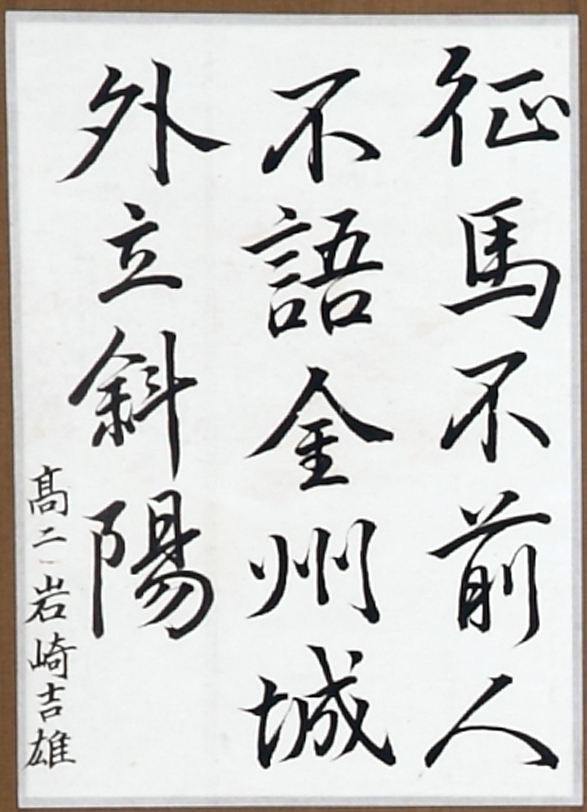 征馬不前人
不語金州城
外立斜陽
髙二 岩崎吉雄